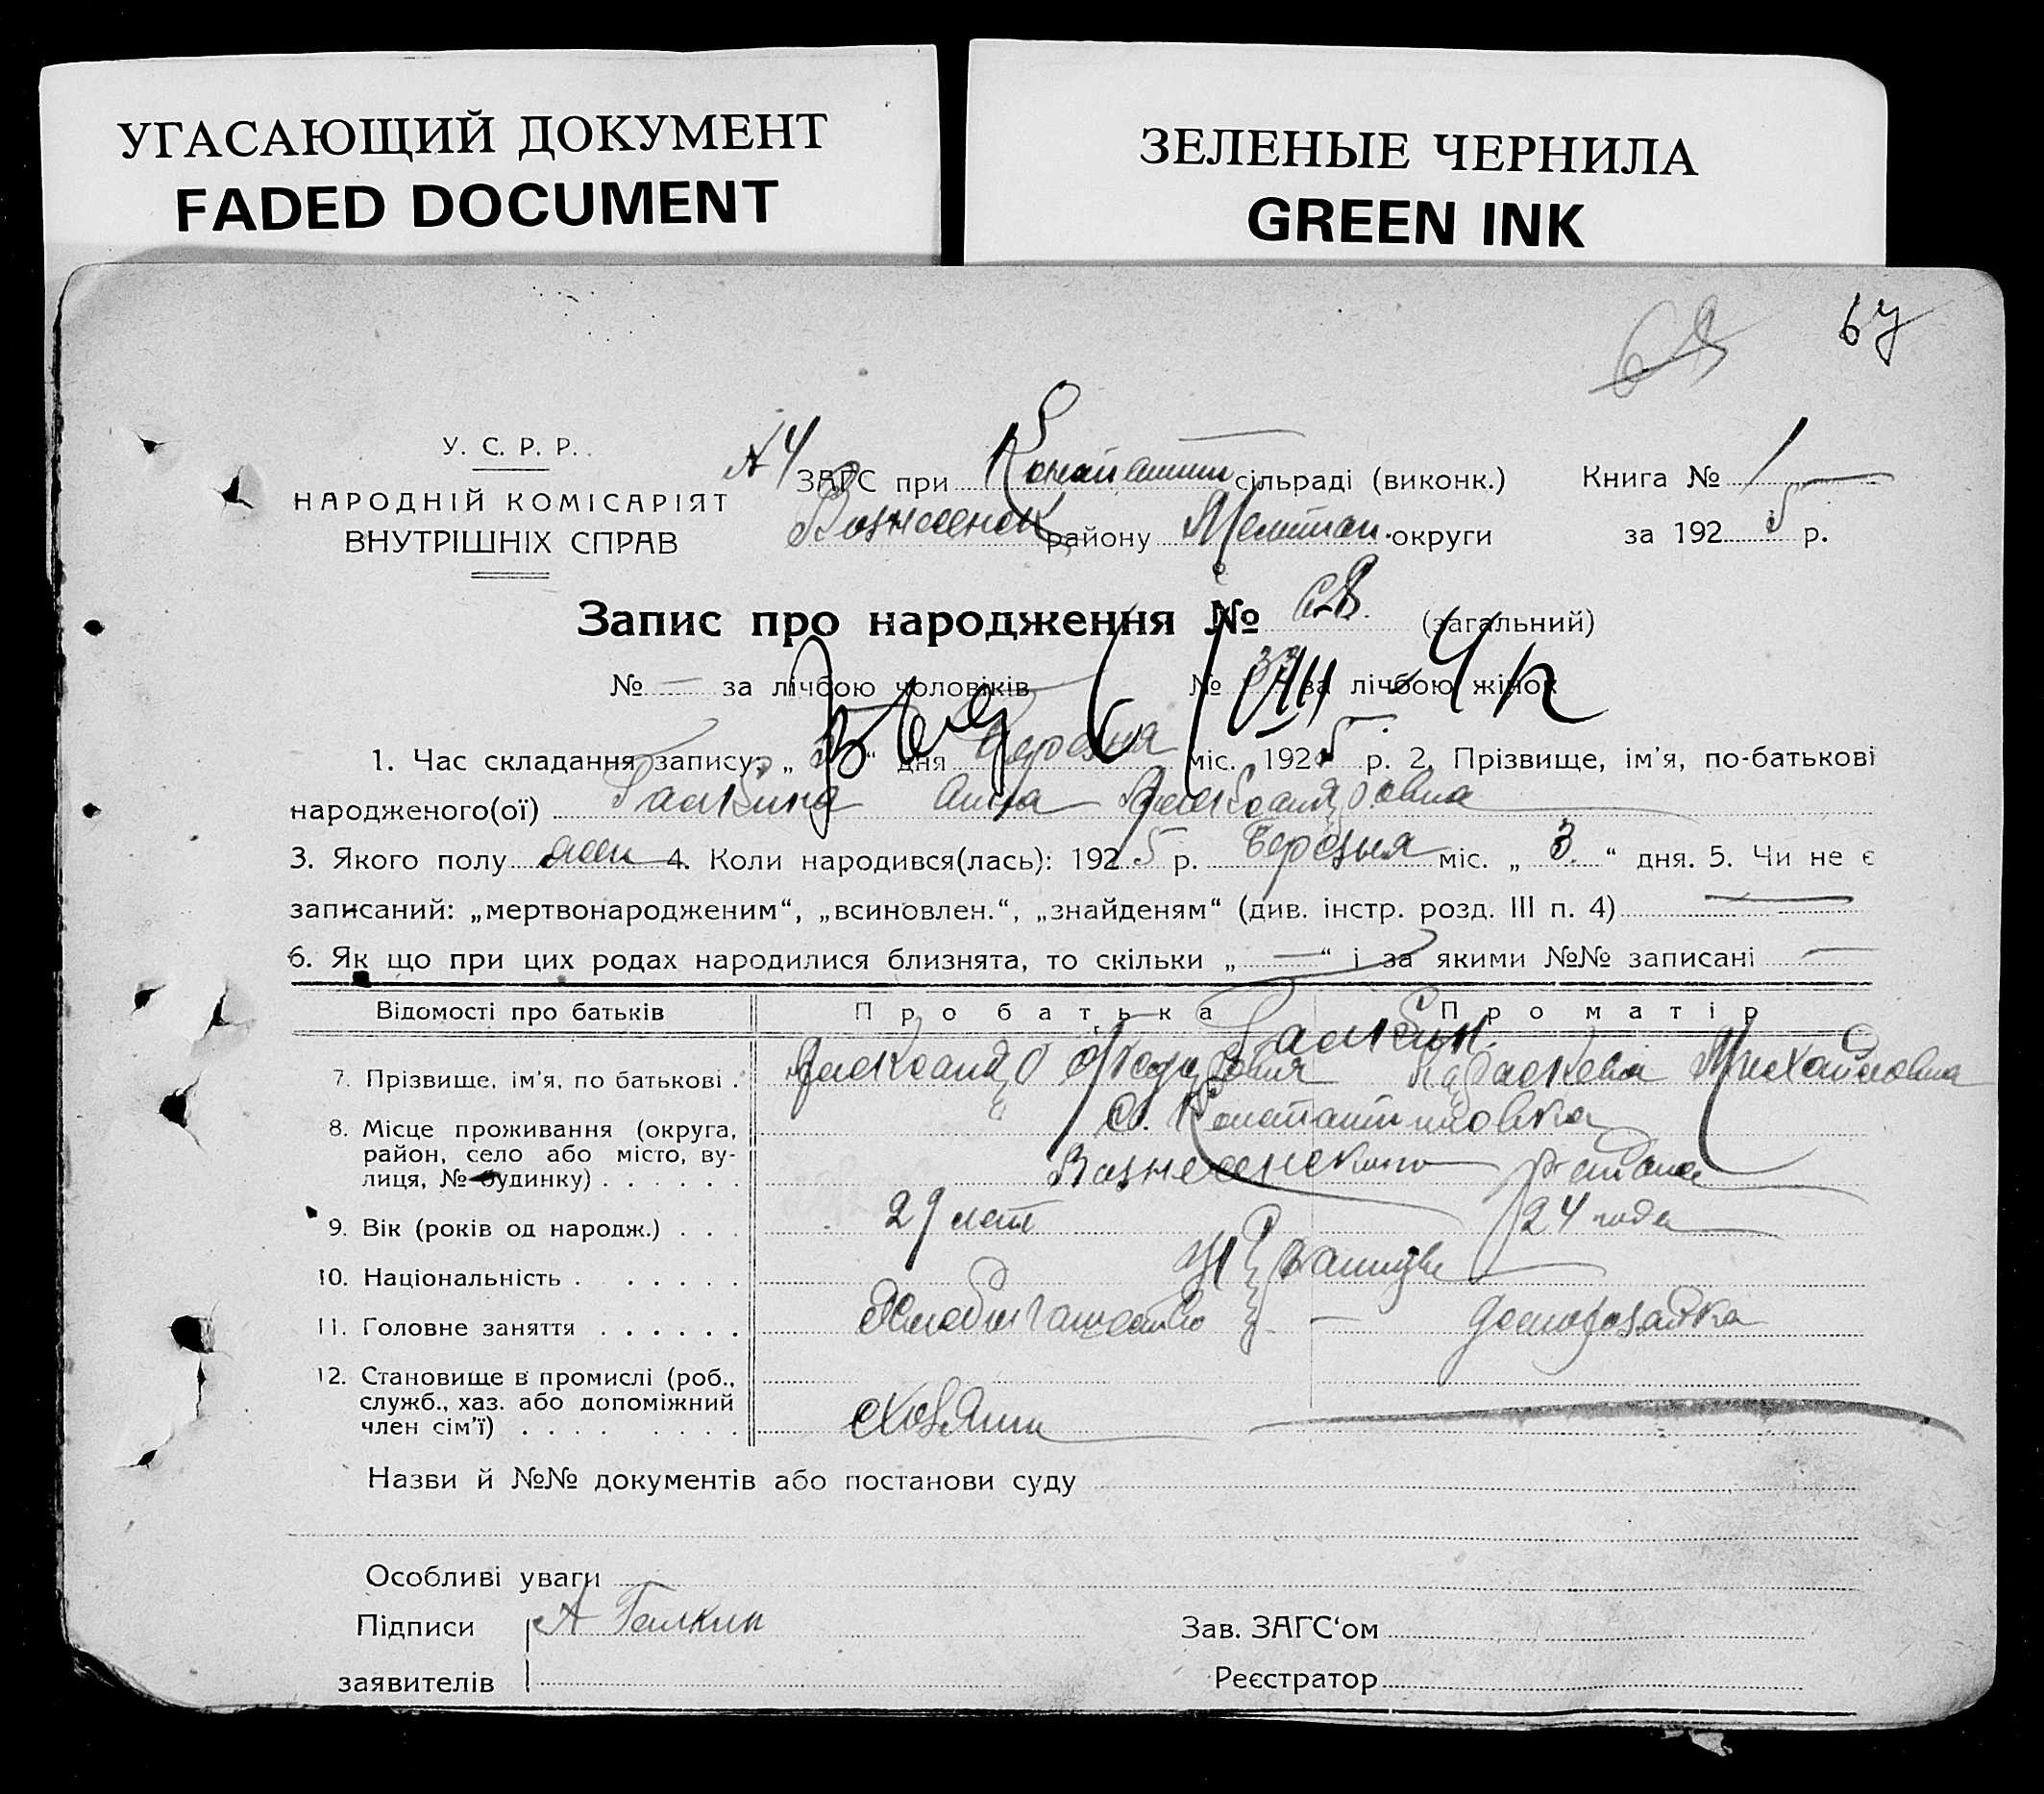 УГАСАЮЩИЙ ДОКУМЕНТ
FADED DOCUMENT
ЗЕЛЕНЫЕ ЧЕРНИЛА
GREEN INK
67
У. С. Р. Р.
НАРОДНІЙ КОМІСАРІЯТ
ВНУТРІШНІХ СПРАВ
ЗАГС при сільраді (виконк.)
Вознесенск району Мелитоп. округи
Книга № 1
за 192 5 р.
Запис про народження № (загальний)
№ — за лічбою чоловіків № за лічбою жінок
1. Час складання запису: „ “ дня Березня міс. 192 5 р. 2. Прізвище, ім'я, по-батькові
народженого(ої) Галкина Анна Александровна
3. Якого полу жен 4. Коли народився(лась): 192 5 р. Березня міс. „ 3. “ дня. 5. Чи не є
записаний: „мертвонародженим“, „всиновлен.“, „знайденям“ (див. інстр. розд. III п. 4) —
6. Як що при цих родах народилися близнята, то скільки „ — “ і за якими №№ записані —
Відомості про батьків Про батька Про матір
Галкин.
7. Прізвище, ім'я, по батькові . Александр Параскева Михайловна
8. Місце проживання (округа, район, село або місто, вулиця, № будинку) . . . . . .
с. Константиновка
Вознесенского района
9. Вік (років од народж.) . . . 29 лет 24 года
10. Національність . . . . . .
11. Головне заняття . . . . . . Хлебопашество — домохозяйка
12. Становище в промислі (роб., служб., хаз. або допоміжний член сім'ї) . . . . . . . .
хозяин
Назви й №№ документів або постанови суду
Особливі уваги
Підписи А Галкин
заявителів
Зав. ЗАГС‘ом
Реєстратор